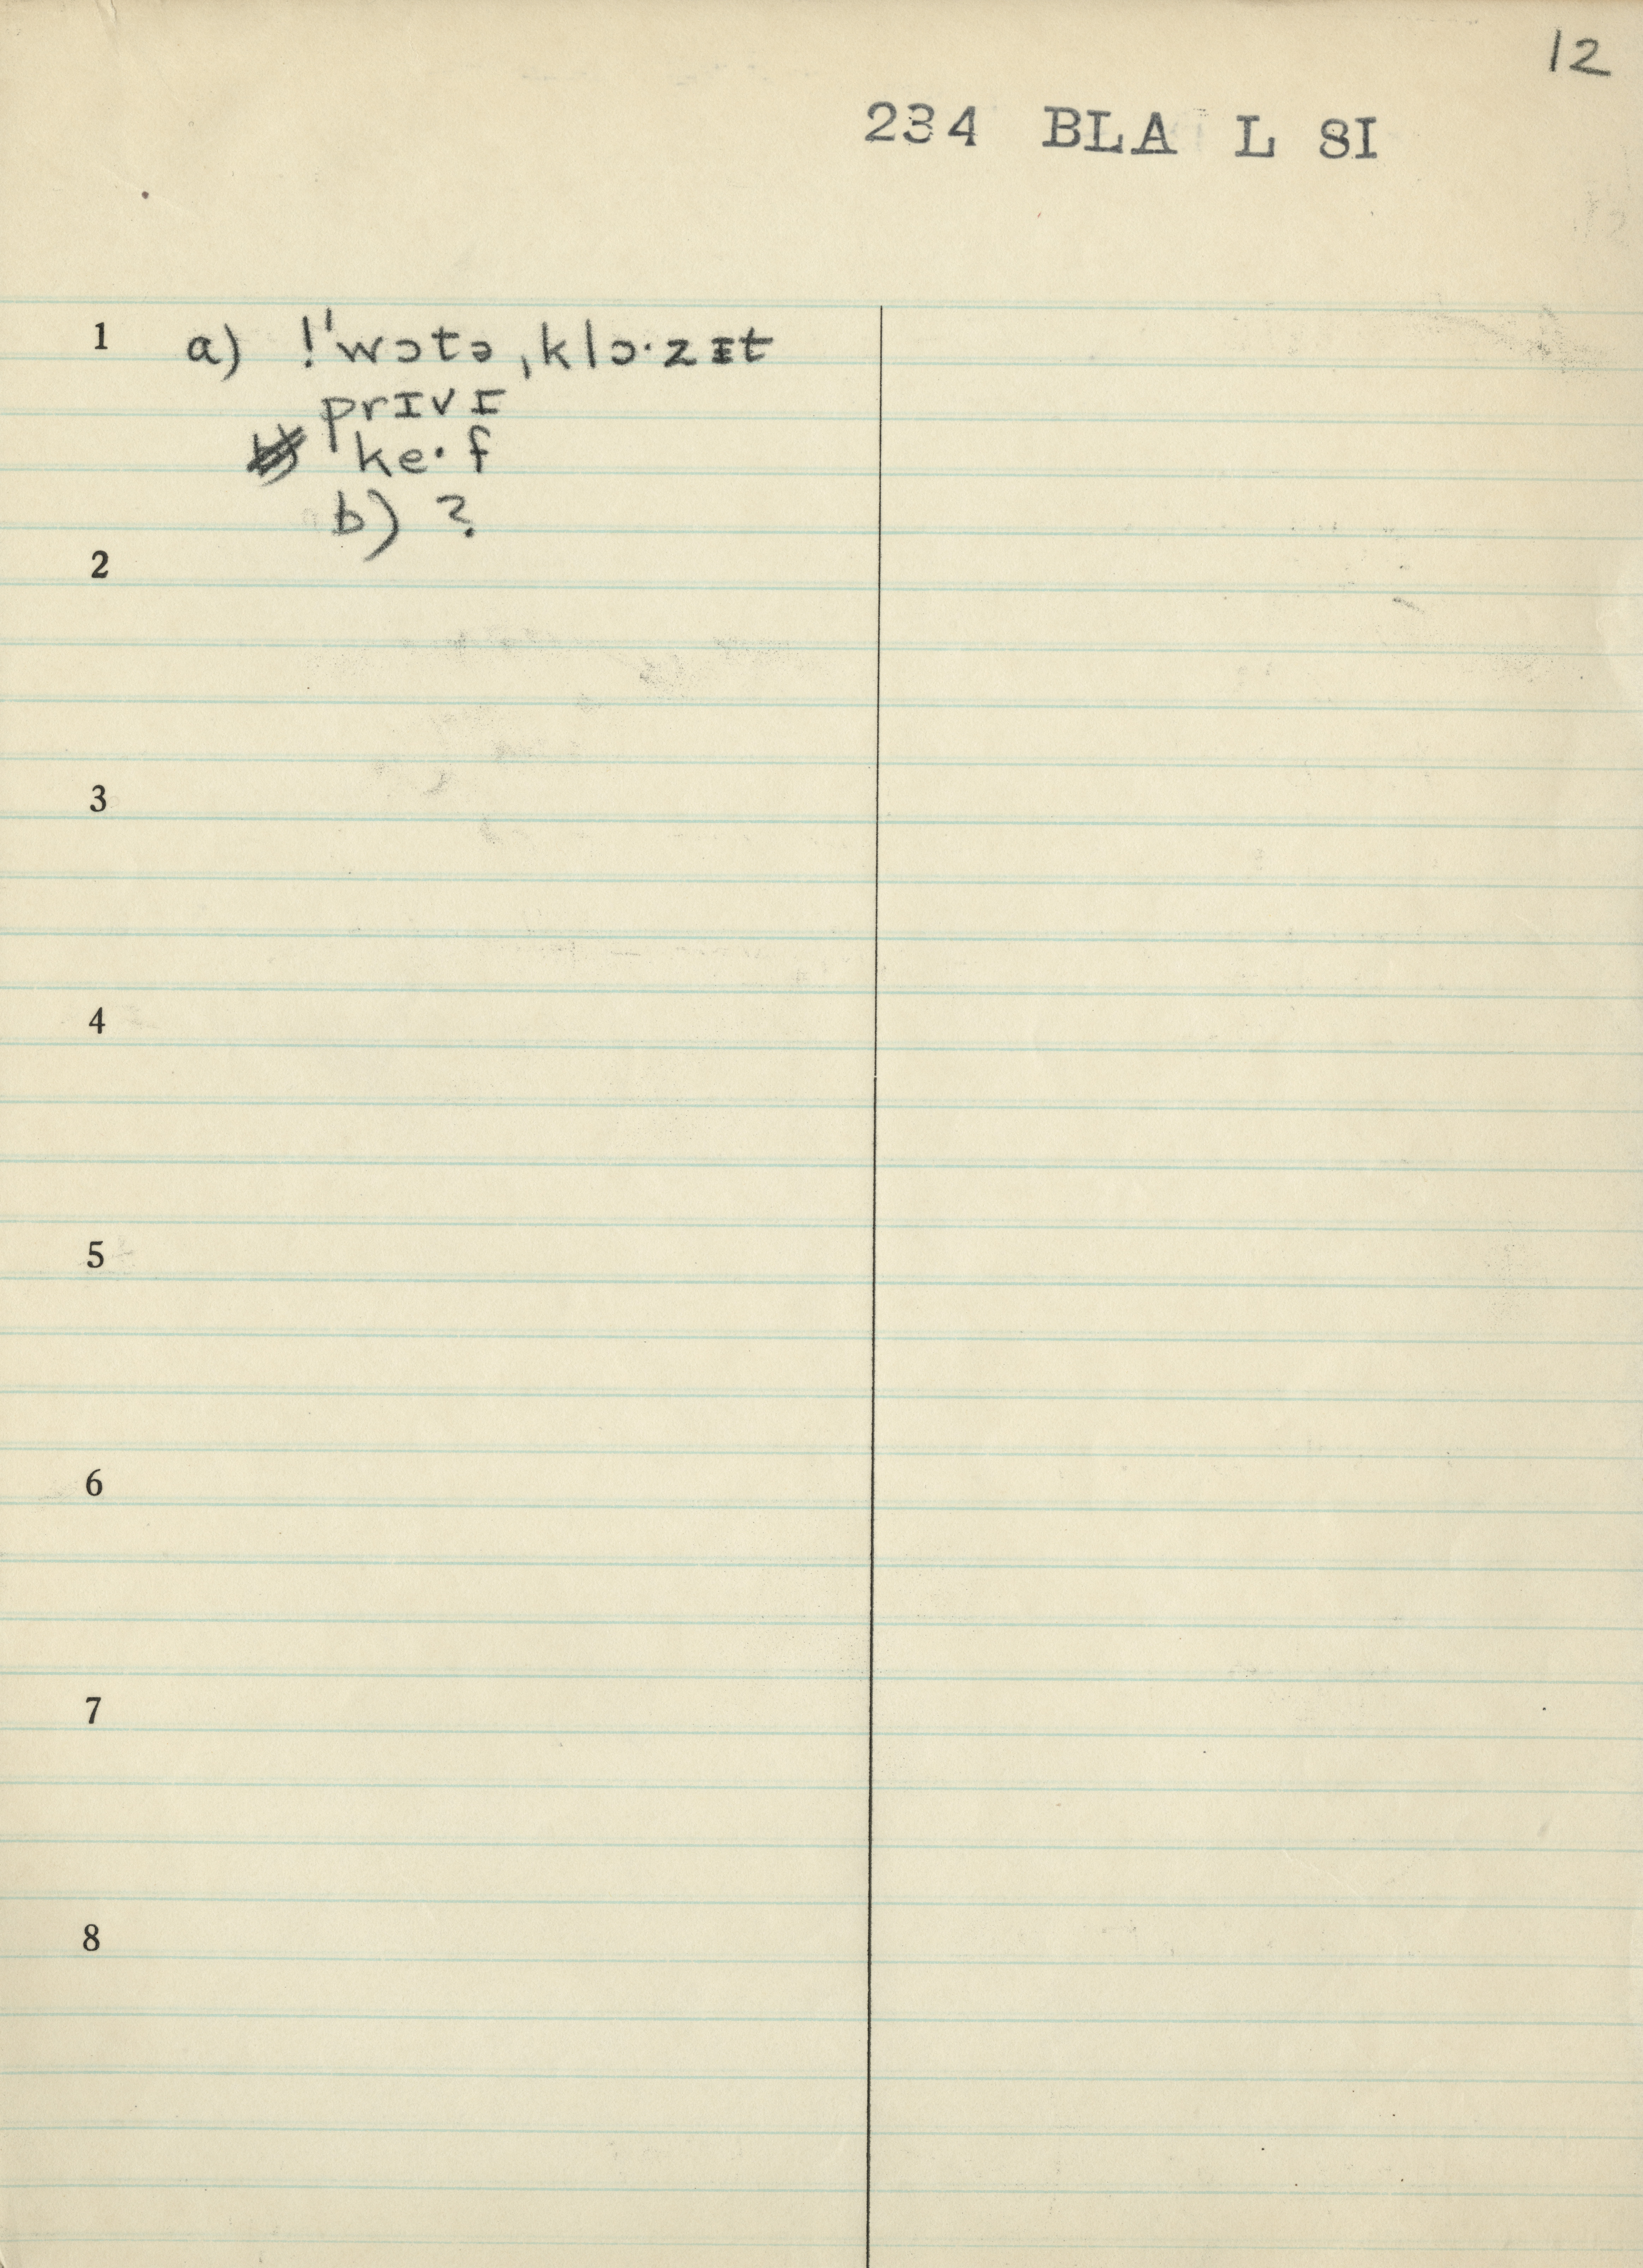 12
234 BLA L SI
1 a) !ˈwɔtə ˌklɔ·zɪt
prɪvɪ
ke·f
b) ?
2
3
4
5
6
7
8